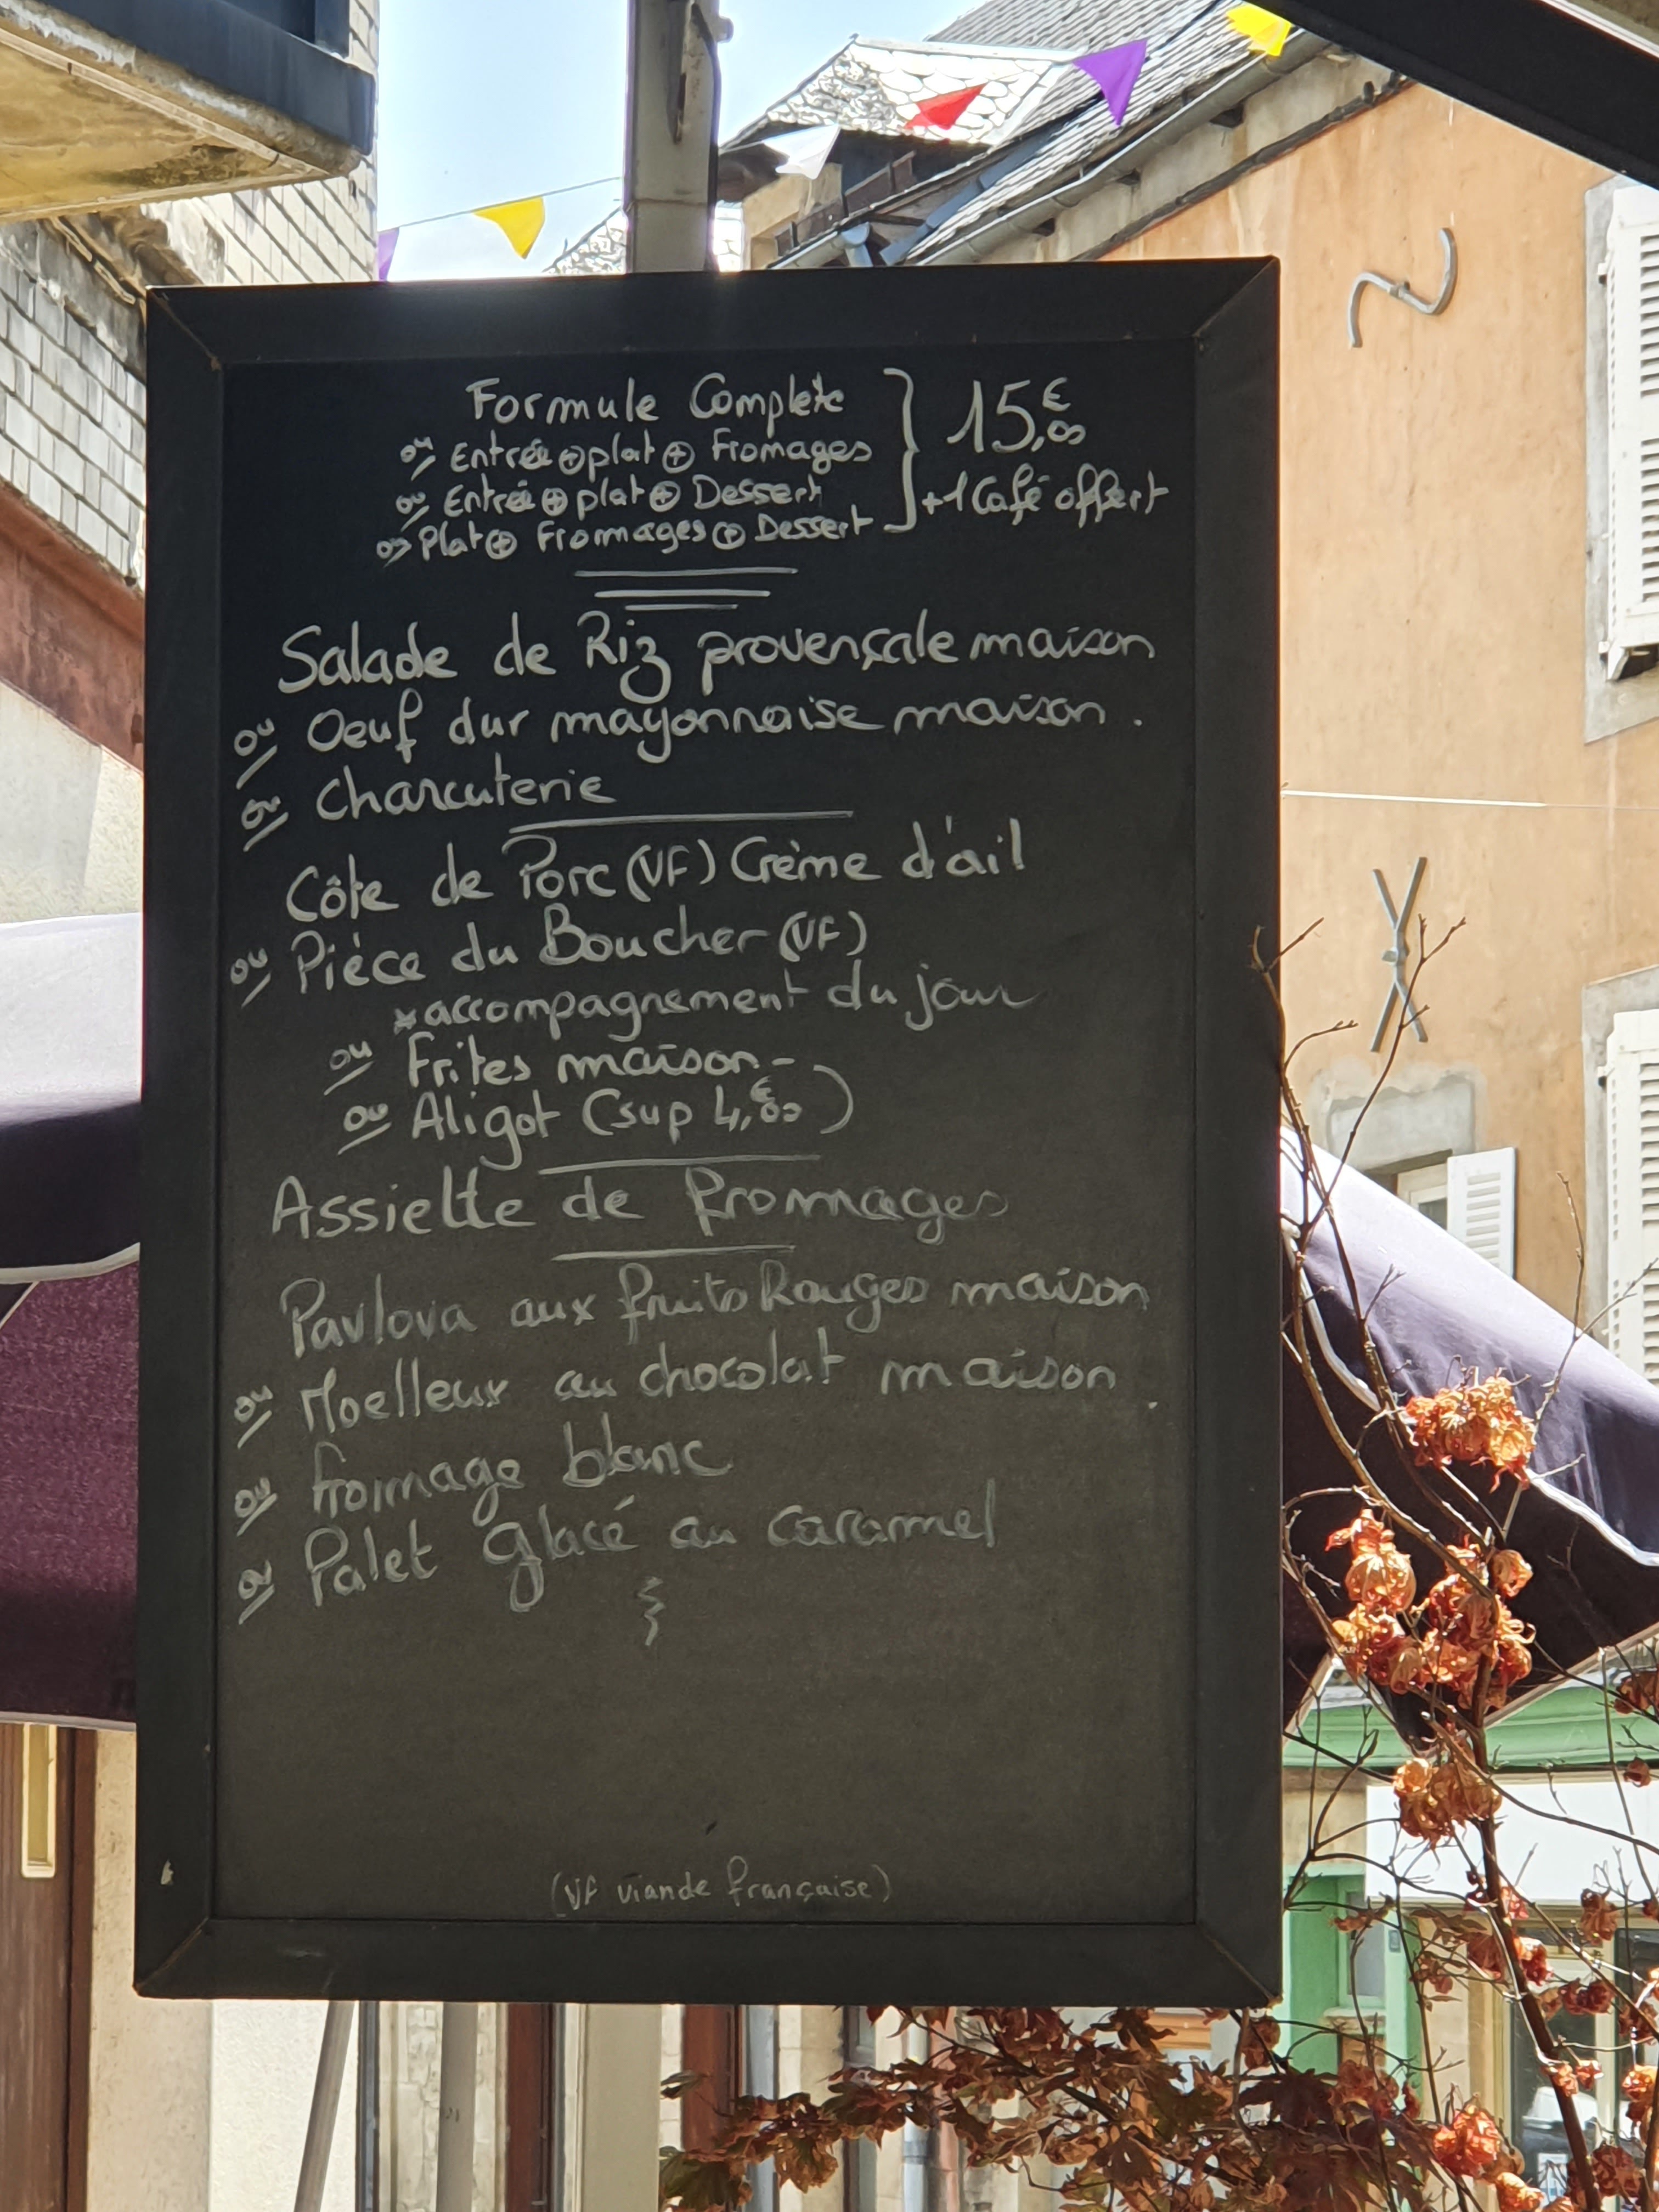 Formule Complète
ou Entrée + plat + Fromages
ou Entrée + plat + Dessert
ou Plat + Fromages + Dessert
} 15,€00
+ 1 Café offert
Salade de Riz provençale maison
ou Oeuf dur mayonnaise maison.
ou Charcuterie
Côte de Porc (VF) Crème d'ail
ou Pièce du Boucher (VF)
* accompagnement du jour
ou Frites maison -
ou Aligot (sup 4,€00)
Assiette de fromages
Pavlova aux fruits Rouges maison
ou Moelleux au chocolat maison.
ou fromage blanc
ou Palet glacé au caramel
(VF viande française)